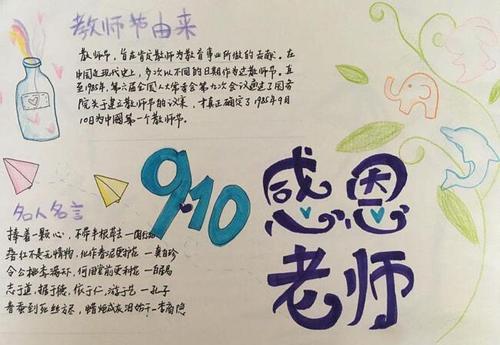 教师节由来
教师节,旨在肯定教师为教育事业所做的贡献。在
中国近现代史上,多次以不同的日期作为过教师节。直
至1985年,第六届全国人大常委会第九次会议通过了国务
院关于建立教师节的议案,才真正确定了1985年9月
10日为中国第一个教师节。
9.10
感恩
老师
名人名言
捧着一颗心,不带半根草去一陶行知
落红不是无情物,化作春泥更护花一龚自珍
令公桃李满 一白居易
志于道,据于德,依于仁,游于艺一孔子
春蚕到死丝方尽,蜡炬成灰泪始干一李商隐